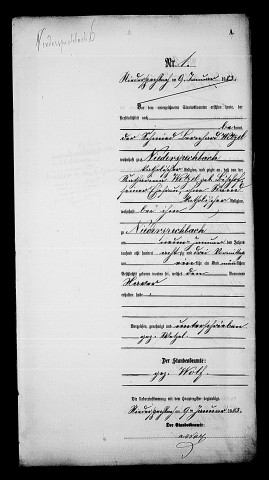 Niederspechbach 6
A.
Nr. 1.
Niederspechbach am 9. Januar 1883.
Vor dem unterzeichneten Standesbeamten erschien heute, der
Persönlichkeit nach
kannt,
der Schmied Bernhard Wetzel
wohnhaft zu Niederspechbach
katholischer Religion, und zeigte an, daß von der
Katharina Wetzel geb.
seiner Ehefrau,
katholischer Religion,
wohnhaft bei ihm
zu Niederspechbach
am neunten Januar des Jahres
tausend acht hundert achtzig und drei Vormittags
um ein Uhr ein Kind männlichen
Geschlechts geboren worden sei, welches den Vornamen
Xaver
erhalten habe
Vorgelesen, genehmigt und unterschrieben
gez. Wetzel
Der Standesbeamte:
gez. Wolf
Die Uebereinstimmung mit dem Hauptregister beglaubigt
Niederspechbach am 9. Januar 1883.
Der Standesbeamte:
Wolf